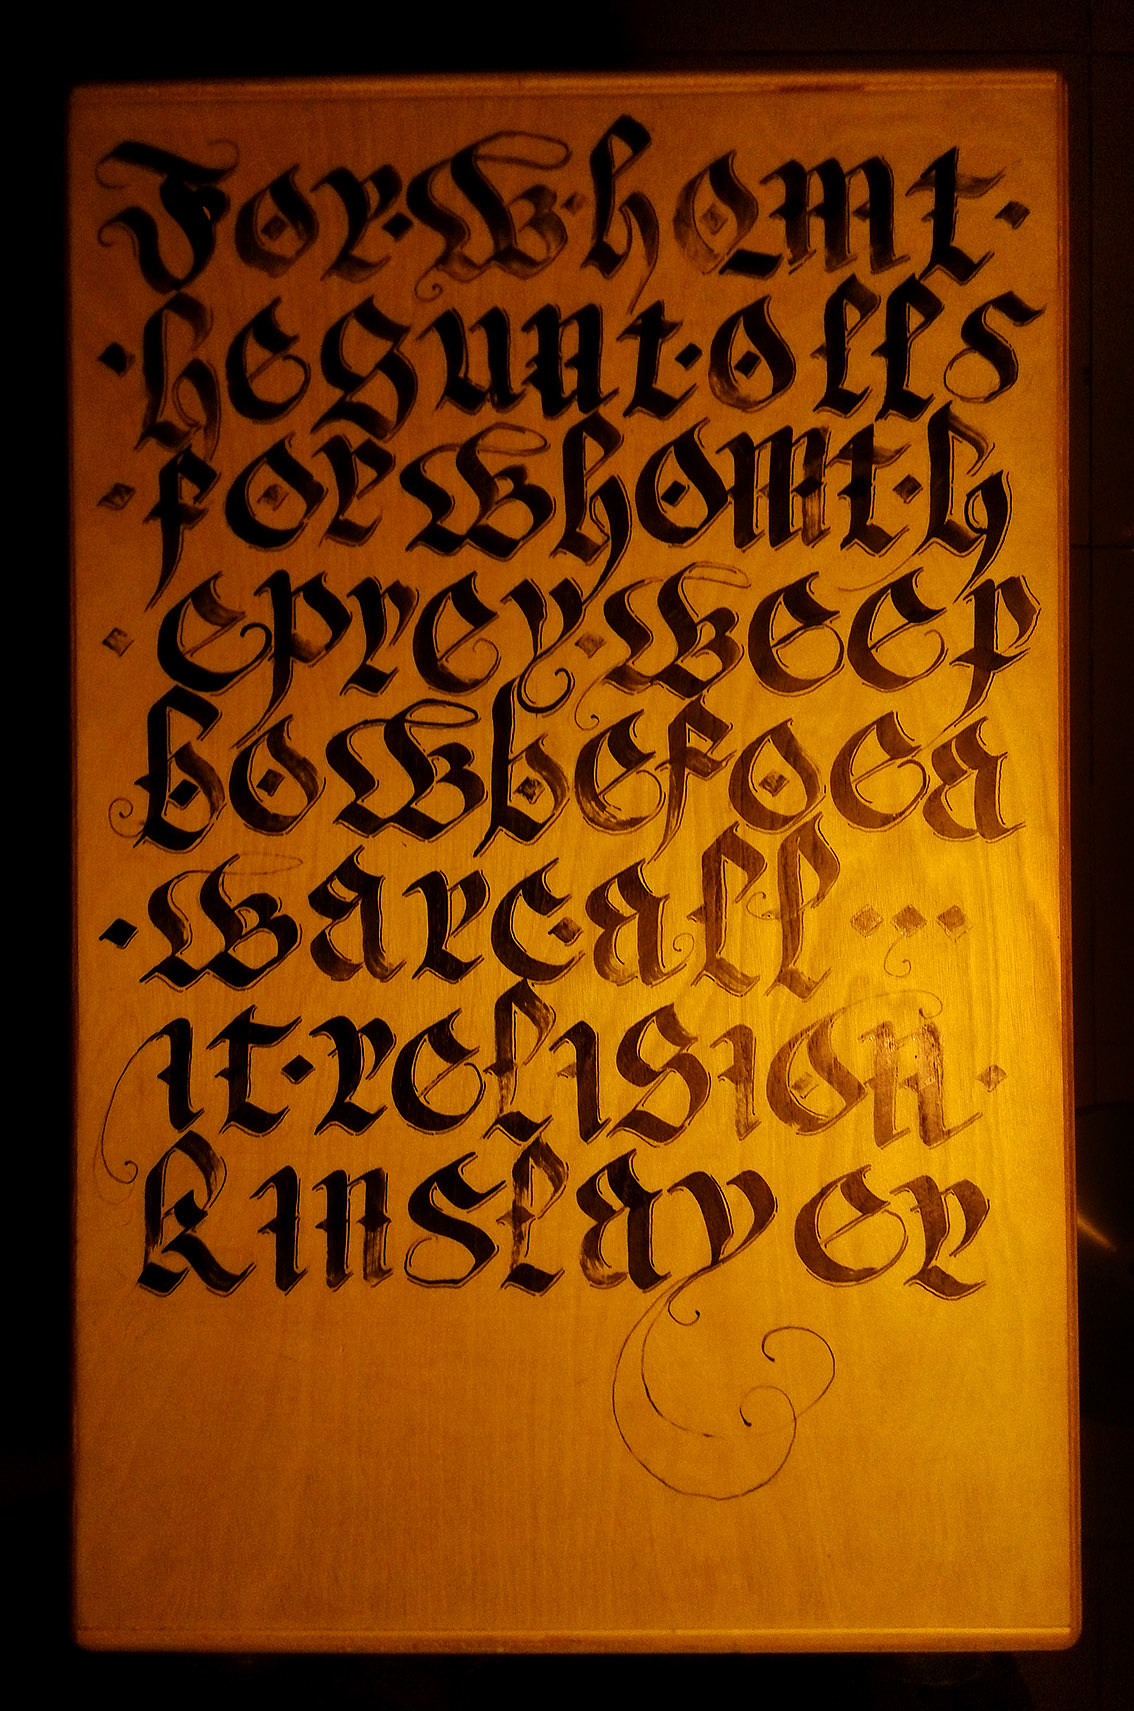 For·Whomt·
·hegunt·olls
·forWhomt·h
·eprey·Weep
boWbefoea
·Warc·all···
it·religion·
kinslayer